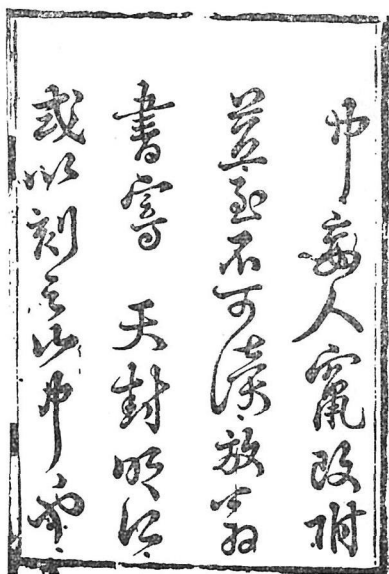 中妄人竄改附
益至不可讀放翁
書寄 天封明
或以刻之山中